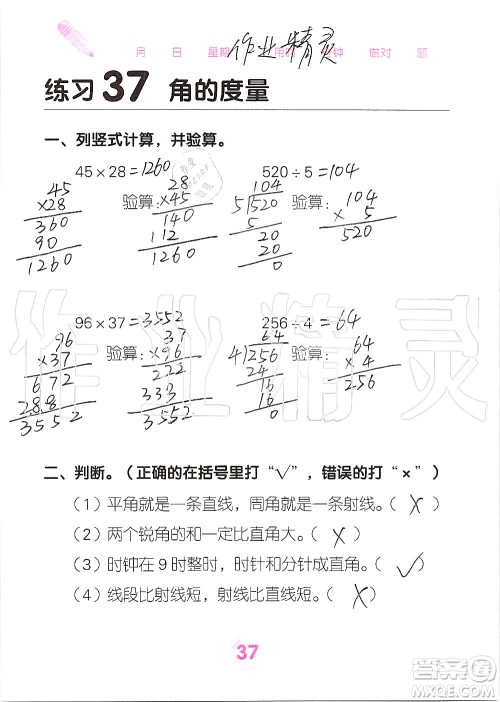 月 日 星期 作业精灵 用时 分钟 做对 题
练习37 角的度量
一、列竖式计算，并验算。
45×28=1260 520÷5=104
45 验算： 28 104 验算： 104
×28 ×45 5√520 × 5
360 140 5 520
90 112 20
1260 1260 20
0
96×37=3552 256÷4=64
96 验算： 37 64 验算： 64
×37 ×96 4√256 × 4
672 222 24 256
288 333 16
3552 3552 16
0
作业精灵
二、判断。（正确的在括号里打“√”，错误的打“×”）
（1）平角就是一条直线，周角就是一条射线。（ × ）
（2）两个锐角的和一定比直角大。（ × ）
（3）时钟在9时整时，时针和分针成直角。（ √ ）
（4）线段比射线短，射线比直线短。（ × ）
37
答案圈
MXQE.COM